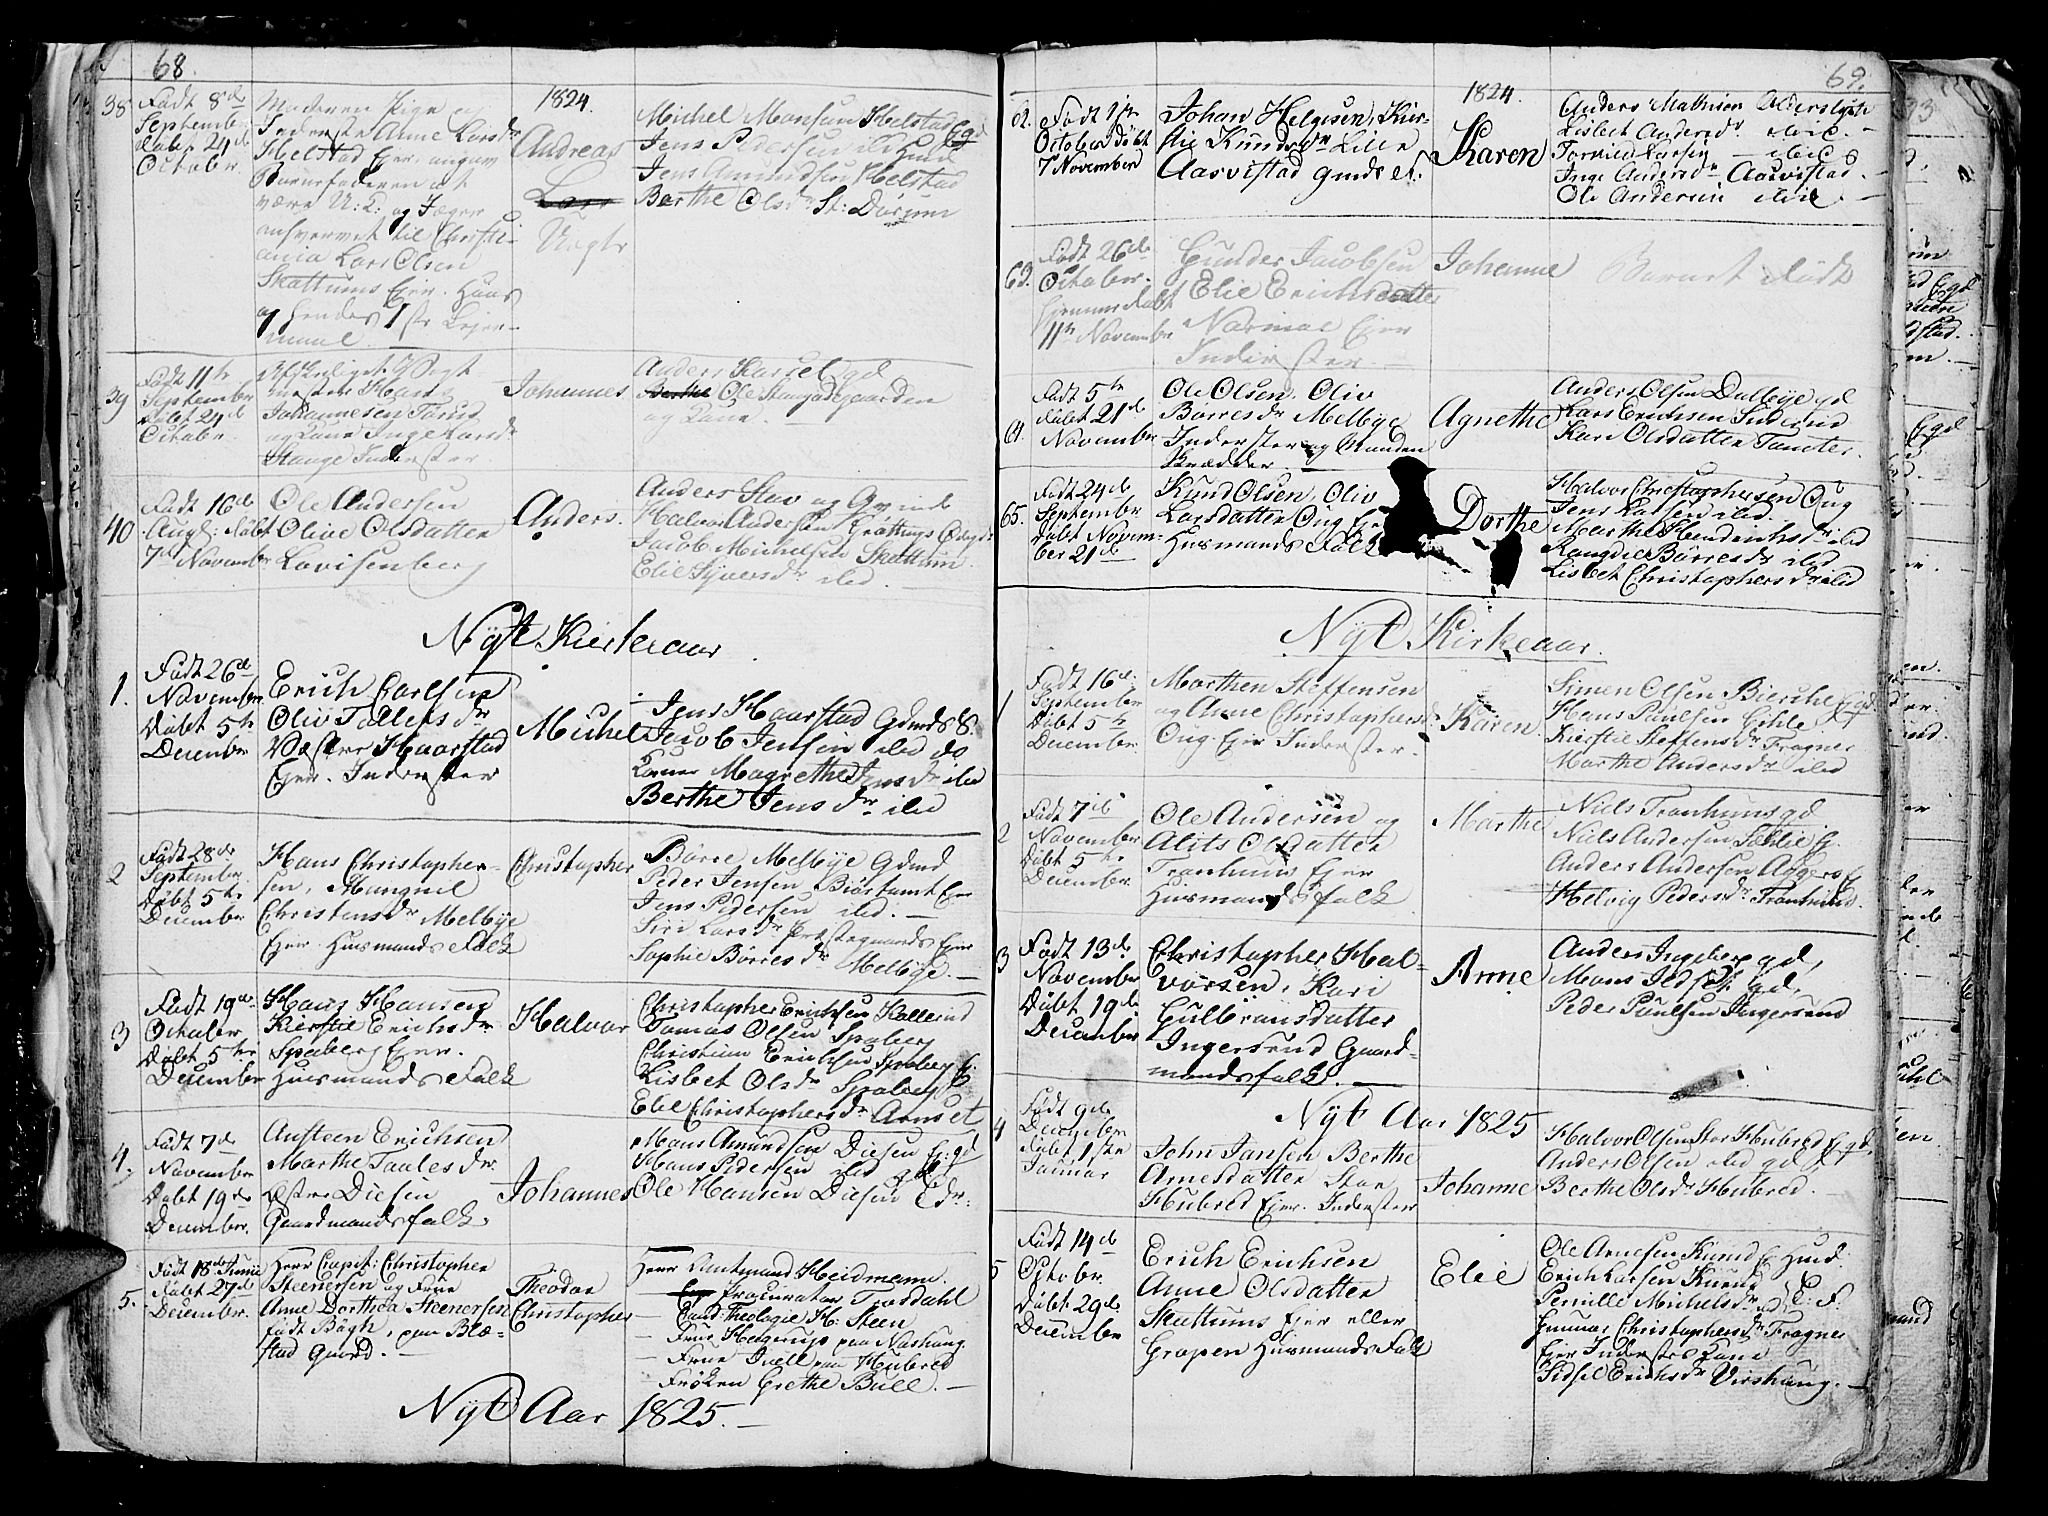 68.
1824.
38 Født 8de
September
Døbt 24de
October.
Moderen Pige og
Inderste Anne Larsdr
Helstad Eier. angav
Barnefaderen at
være U: O: og Jæger
anhvervet til Christi-
ania Lars Olsen
Skattums Eier. Hans
og hendes 1ste Leier-
maal.
Andreas
Uægte
Michel Monsen Helstad Egd
Jens Pedersen ibid
Jens Amundsen Helstad
Berthe Olsdr St: Dørum
39 Født 11te
September
Døbt 24de
Octobr.
Johannesen
og Kone Inge Larsdr
Stange Inderster.
Johannes
Anders Karset gd
Ole Stangdegaarden
og Kone.
40 Født 16de
Aug: Døbt
7de Novembr
Ole Andersen
Olive Olsdatter
Lovisenberg
Anders.
Anders Stav og Qvinde
Halvor Andersen
Jacob Michelsen Skattum
Elie Syversdr ibid.
Nyt Kirkeaar
1. Født 26de
November
Døbt 5te
Decembr
Erich Carlsen
Oliv Tollefsdr
Vestre Haarstad
Eier. Inderster
Michel
Jens Haarstad Gdmds S.
Jacob Jensen ibid do
Konen Magrethe Jensdr ibid
Berthe Jensdr ibid
2 Født 28de
September
Døbt 5te
Decembr
Hans Christopher-
sen, Mangnil
Christensdr Melbye
Eier. Huusmands Folk
Christopher
Børre Melbye Gdmd
Peder Jensen Biørtomt Eier
Jens Pedersen ibid.
Siri Larsdr Prestegaards Eier
Sophie Børresdr Melbye.
3 Født 19de
October
Døbt 5te
December
Hans Hansen
Kierstie Erichsdr
Spaberg Eier.
Huusmands Folk
Halvor
Christopher Erichsen Kallerud
Tomas Olsen Spaberg
Christian Erichsen Spaberg E:
Lisbet Olsdr Spaberg
Elie Christophersdr Arnset
4. Født 7de
Novembr
Døbt 19de
Decembr.
Austeen Erichsen
Marthe Taalesdr
Østre Diesen
Gaardmandsfolk
Johannes
Mons Amundsen Diesen Ej: gd
Hans Pedersen ibid gd
Ole Hansen Diesen
5. Født 18de Junii
Døbt 27de
Decembr.
Herr Capit: Christopher
Steenersen og Frue
Anne Dorthea Steenersen
født Bøgh, paa Blæ-
stad Gaard.
Theodor
Christopher
Herr Amtmand Heidmann.
Procurator Trosdahl
Cand: Theologie H: Steen
Frue Hagerup paa Nashaug.
Frue Juell paa Hubred
Frøken Grethe Bull.
Nyt Aar 1825.
69.
1824.
62. Født 1ste
October Døbt
7 November
Johan Helgesen, Kier-
stie Knudsdr Lille
Aasvistad Gmdset.
Karen
Anders Mathisen Alderslyst
Lisbet Andersdr ibid.
Torkild Larsen ibid
Inge Andersdr Aasvistad.
Ole Andersen ibid
63. Født 26de
October.
Hjemmedøbt
11te November
Gunder Jacobsen
Elie Erichsdatter
Normoe Eier
Inderster.
Johanne
Barnet døde
64. Født 5te
Døbt 21de
Novembr
Ole Olsen, Oliv
Børresdr Melbye
Inderster og Manden
Skrædder
Agnethe
Anders Olsen Dalbye gd
Lars Erichsen Sinderud
Kari Olsdatter Tomter.
65. Født 24de
September
Døbt Novem-
ber 21de
Knud Olsen, Oliv
Larsdatter Oug Eier
Huusmands Folk
Dorthe
Halvor Christophersen Oug
Jens Larsen ibid.
Marthe Hendrichsdr ibid
Rangdie Børresdr ibid
Lisbet Christophersdr ibid
Nyt Kirkeaar.
1 Født 16de
September
Døbt 5te
Decembr.
Marthen Steffensen
og Anne Christophersdr
Oug. Eier Inderster.
Karen
Simen Olsen Bierche Egd
Hans Paulsen Echle
Kierstie Steffensdr Fragner
Marthe Andersdr ibid
2 Født 7de
November
Døbt 5te
Decembr.
Ole Andersen og
Alits Olsdatter
Tronhuus Eier
Huusmandsfolk
Marthe
Niels Tronhuus gd.
Niels Andersen Sælie G.
Anders Andersen Aagers G
Helvig Pedersdr Tronhuus.
3 Født 13de
November
Døbt 19de
December
Christopher Hal-
vorsen, Kari
Gulbransdatter
Ingersrud Gaard-
mandsfolk.
Arne
Anders Ingeberg gd,
Mons Ildset gd,
Peder Paulsen Ingersrud
Nyt Aar 1825
4 Født 9de
Decembr
Døbt 1ste
Januar
John Jansen Berthe
Arnesdatter Stor
Hubred Eier. Inderster
Johanne
Halvor Olsen Stor Hubred Egd.
Anders Olsen ibid gd
Berthe Olsdr Hubred.
5 Født 14de
Octobr.
Døbt 29de
Decembr
Erich Erichsen
Anne Olsdatter
Skattums Eier eller
Gropen Huusmands Folk
Elie
Ole Arnesen Kurud E Huusd.
Erich Larsen Kurud
Pernille Michelsdr ibid E: F.
Gunnor Christophersdr Fragner
Eier Inderstes Kone
Sidsel Erichsdr Virshaug.